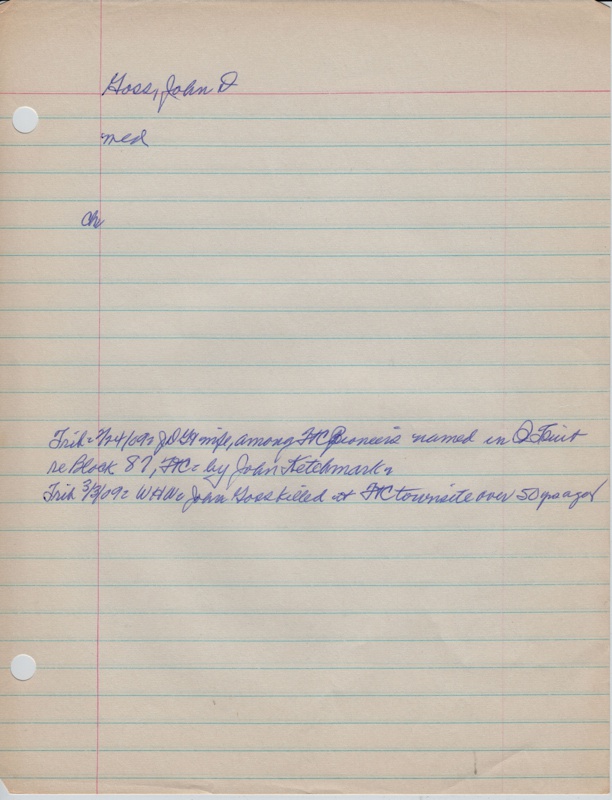 Goss, John D
med
ch
Trib = 2/24/09 = JDG & wife, among FtC Pioneers named in Q T Suit
re Block 87, FtC = by John Ketchmark =
Trib 3/3/09 = WHW = John Goss killed at FtC townsite over 50 yrs ago